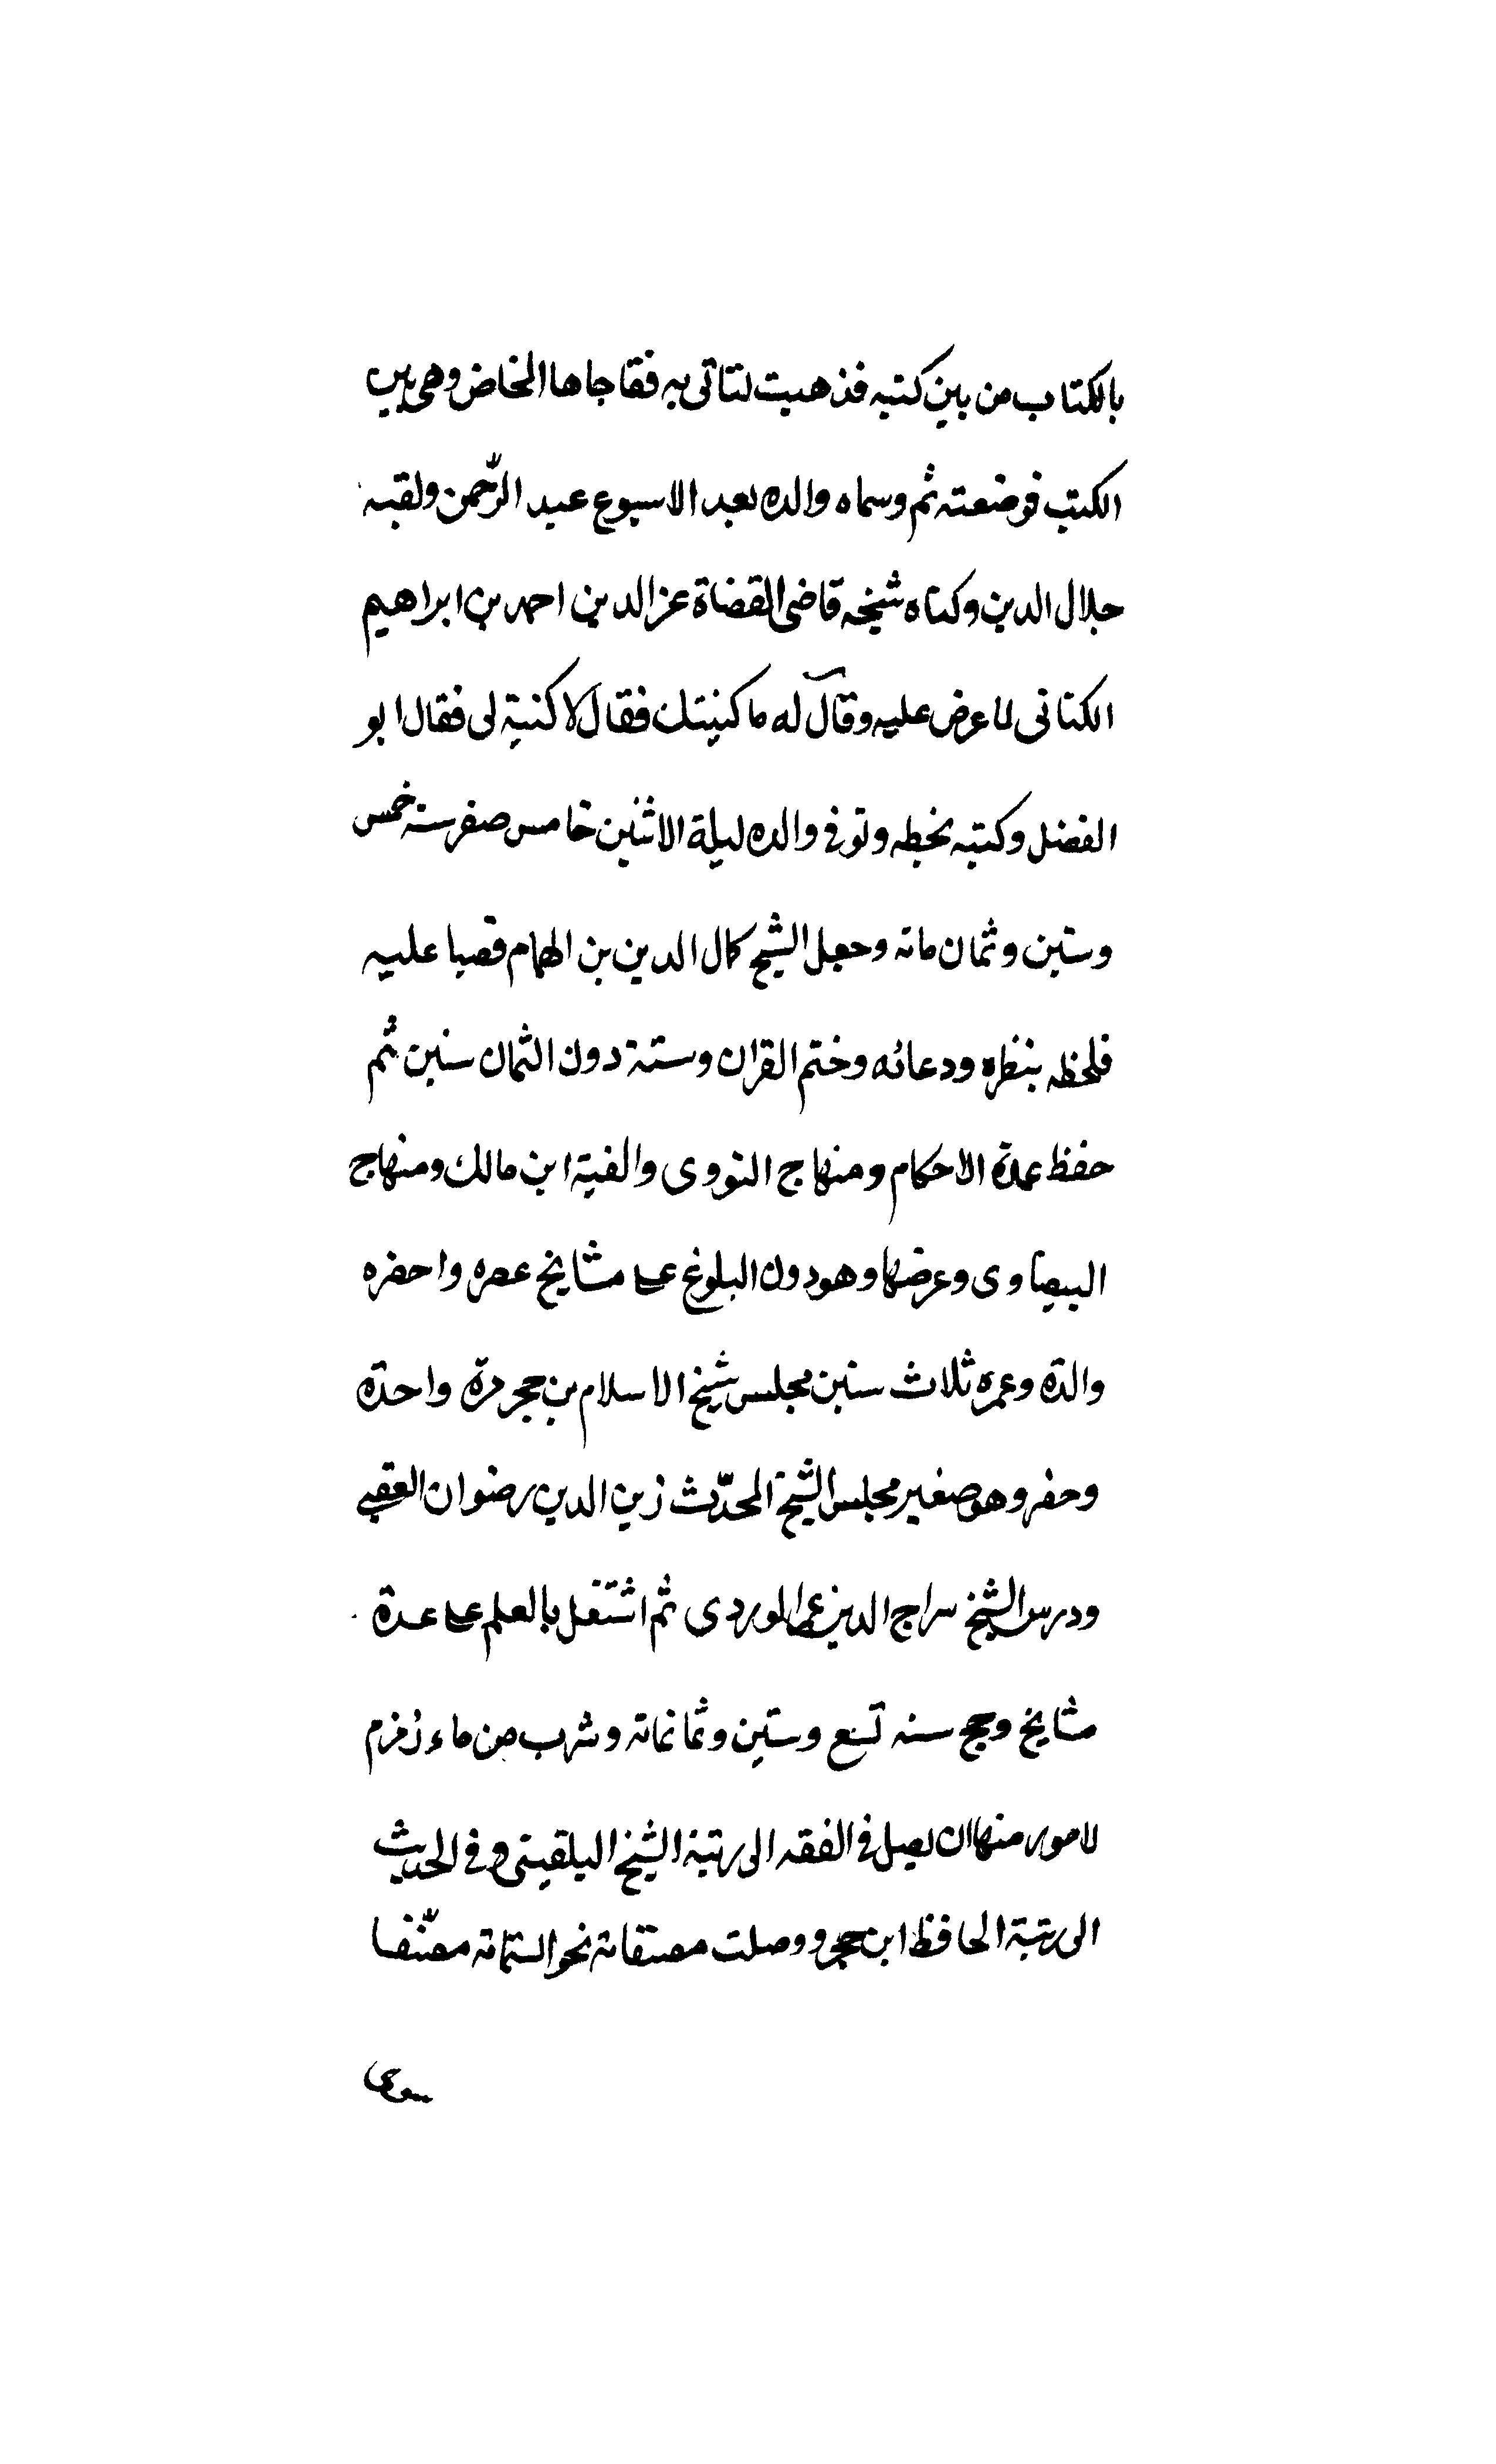 بالكتاب من بين كتبه فذهبت لتاتى به فقاجاها المخاض وهى بين
الكتب فوضعته ثم وسماه والده بعد الاسبوع عبد الرّحمن ولقبه
جلال الدين وكناه شيخه قاضى القضاة عز الدين احمد بن ابراهيم
الكنانى لما عرض عليه وقال له ما كنيتك فقال لا كنية لى فقال ابو
الفضل وكتبه بخطه وتوفى والده ليلة الاثنين خامس صفر سنة خمس
وستين وثمان مائة وجعل الشيخ كمال الدين بن الهمام قصيا عليه
فلحظه بنظره ودعائه وختم القران وسنة دون الثمان سنين ثم
حفظ عمدة الاحكام ومنهاج النووى والفية ابن مالك ومنهاج
البيضاوى وعرضها وهو دون البلوغ على مشايخ عصره واحضره
والدة وعمره ثلاث سنين مجلس شيخ الاسلام بن حجر مرة واحدة
وحضر وهو صغير مجلس الشيخ المحدّث زين الدين رضوان العقبى
ودرس الشيخ سراج الدين عمر الوردى ثم اشتغل بالعلم على عدة
مشايخ وحج سنه تسع وستين وثمانمائة وشرب من ماء زمزم
لامور منها ان يصل فى الفقه الى رتبة الشيخ البلقينى وفى الحديث
الى رتبة الحافظ ابن حجر ووصلت مصنفاته نحو الستمائة مصنّفا
سوى